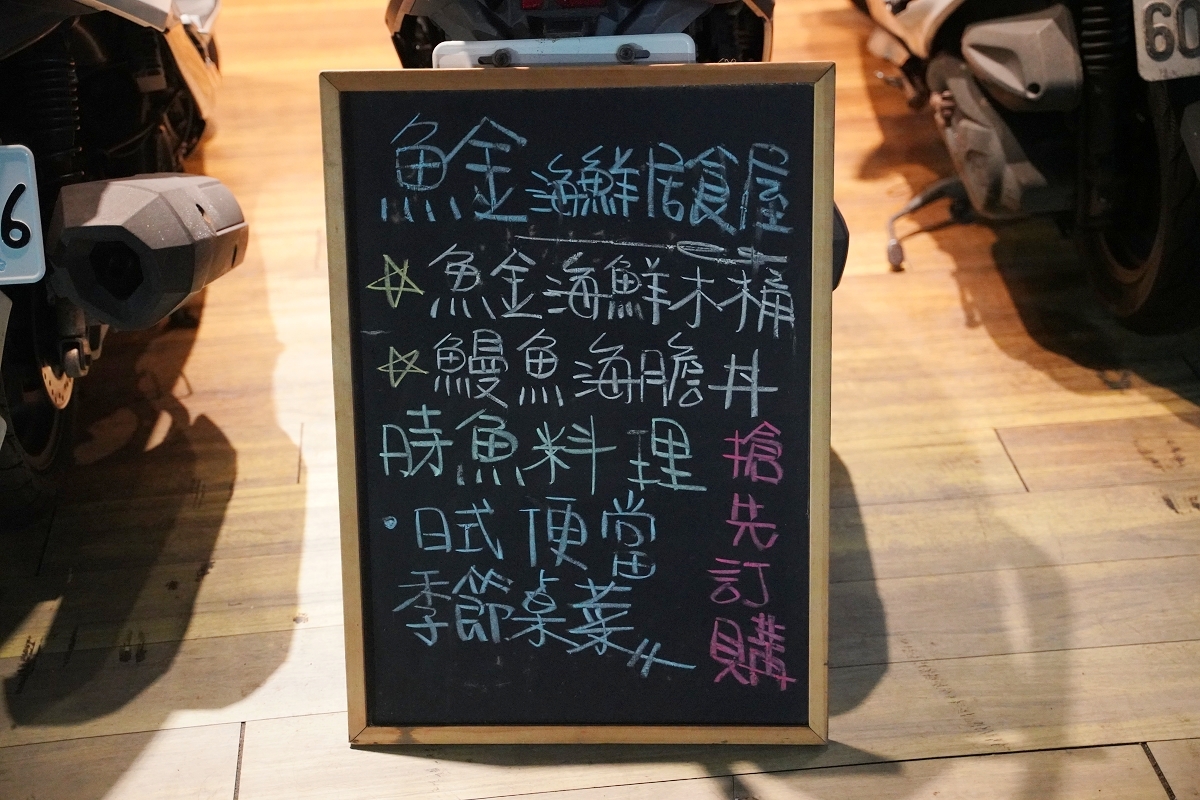 魚金海鮮居食屋
☆魚金海鮮木桶
☆鰻魚海膽丼
時魚料理
•日式便當
季節桌菜
搶先訂購
6
60